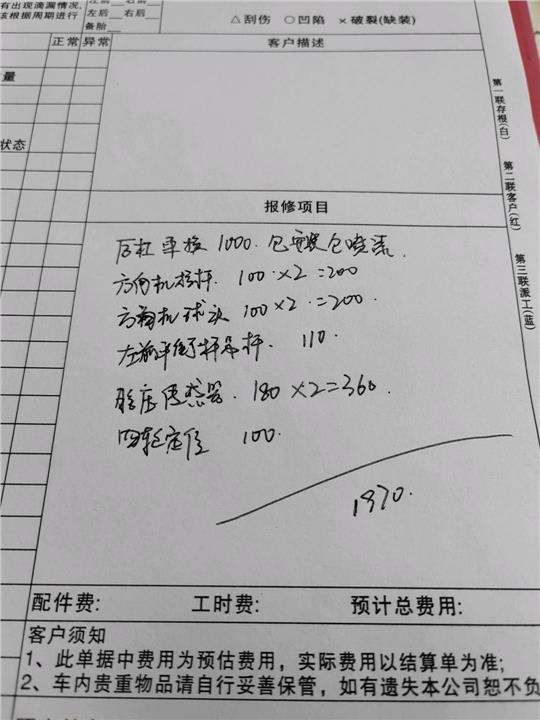 有出现滴漏情况,
该根据周期进行
左后__右后__
备胎__
△刮伤 ○凹陷 ×破裂(缺装)
正常 异常 客户描述
量
状态
第一联存根(白)
第二联客户(红)
第三联派工(蓝)
报修项目
后杠 1000. 包安装包喷漆.
方向机拉杆. 100.×2=200
方向机球头 100×2.=200.
左前平衡杆吊杆. 110.
胎压传感器. 180×2=360.
四轮定位 100.
1970.
配件费: 工时费: 预计总费用:
客户须知
1、此单据中费用为预估费用，实际费用以结算单为准;
2、车内贵重物品请自行妥善保管，如有遗失本公司恕不负